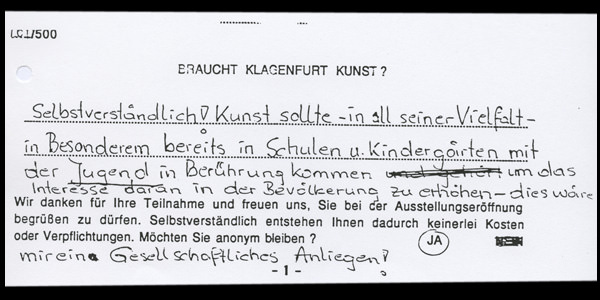 /500
BRAUCHT KLAGENFURT KUNST?
Selbstverståndlich! Kunst sollte - in all seiner Vielfalt -
in Besonderem bereits in Schulen u. Kindergärten mit
der Jugend in Berührung kommen um das
Interesse daran in der Bevölkerung zu erhöhen - dies wäre
Wir danken für Ihre Teilnahme und freuen uns, Sie bei der Ausstellungseröffnung
begrüßen zu dürfen. Selbstverständlich entstehen Ihnen dadurch keinerlei Kosten
oder Verpflichtungen. Möchten Sie anonym bleiben ? JA
mir ein Gesellschaftliches Anliegen!
- 1 -